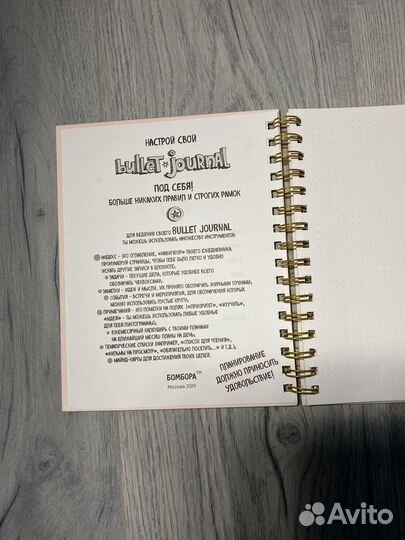 НАСТРОЙ СВОЙ
bullet journal
ПОД СЕБЯ!
БОЛЬШЕ НИКАКИХ ПРАВИЛ И СТРОГИХ РАМОК
ДЛЯ ВЕДЕНИЯ СВОЕГО BULLET JOURNAL
ТЫ МОЖЕШЬ ИСПОЛЬЗОВАТЬ МНОЖЕСТВО ИНСТРУМЕНТОВ:
ИНДЕКС - ЭТО ОГЛАВЛЕНИЕ, «НАВИГАТОР» ТВОЕГО ЕЖЕДНЕВНИКА.
ПРОНУМЕРУЙ СТРАНИЦЫ, ЧТОБЫ ТЕБЕ БЫЛО ЛЕГКО И УДОБНО
ИСКАТЬ ДРУГИЕ ЗАПИСИ В БЛОКНОТЕ;
ЗАДАЧИ - ТЕКУЩИЕ ДЕЛА, КОТОРЫЕ УДОБНЕЕ ВСЕГО
ОБОЗНАЧАТЬ ЧЕКБОКСАМИ;
ЗАМЕТКИ - ИДЕИ И МЫСЛИ, ИХ ПРИНЯТО ОБОЗНАЧАТЬ ЖИРНЫМИ ТОЧКАМИ;
СОБЫТИЯ - ВСТРЕЧИ И МЕРОПРИЯТИЯ, ДЛЯ ОБОЗНАЧЕНИЯ КОТОРЫХ
МОЖНО ИСПОЛЬЗОВАТЬ ПУСТЫЕ КРУГИ;
ПРИМЕЧАНИЯ - ЭТО ПОМЕТКИ НА ПОЛЯХ («ПРИОРИТЕТ», «ИЗУЧИТЬ»,
«ИДЕЯ» - ТЫ МОЖЕШЬ ИСПОЛЬЗОВАТЬ ЛЮБЫЕ УДОБНЫЕ
ДЛЯ ТЕБЯ ПИКТОГРАММЫ);
ЕЖЕМЕСЯЧНЫЙ КАЛЕНДАРЬ С ТВОИМИ ПЛАНАМИ
НА БЛИЖАЙШИЙ МЕСЯЦ; ПЛАНЫ НА ДЕНЬ;
ТЕМАТИЧЕСКИЕ СПИСКИ (НАПРИМЕР, «СПИСОК ДЛЯ ЧТЕНИЯ»,
«ФИЛЬМЫ НА ПРОСМОТР», «ОБЯЗАТЕЛЬНО ПОСЕТИТЬ...» И Т.Д.);
МАЙНД-КАРТЫ ДЛЯ ДОСТИЖЕНИЯ ТВОИХ ЦЕЛЕЙ.
ПЛАНИРОВАНИЕ
ДОЛЖНО ПРИНОСИТЬ
УДОВОЛЬСТВИЕ!
БОМБОРА™
Москва 2019
Avito